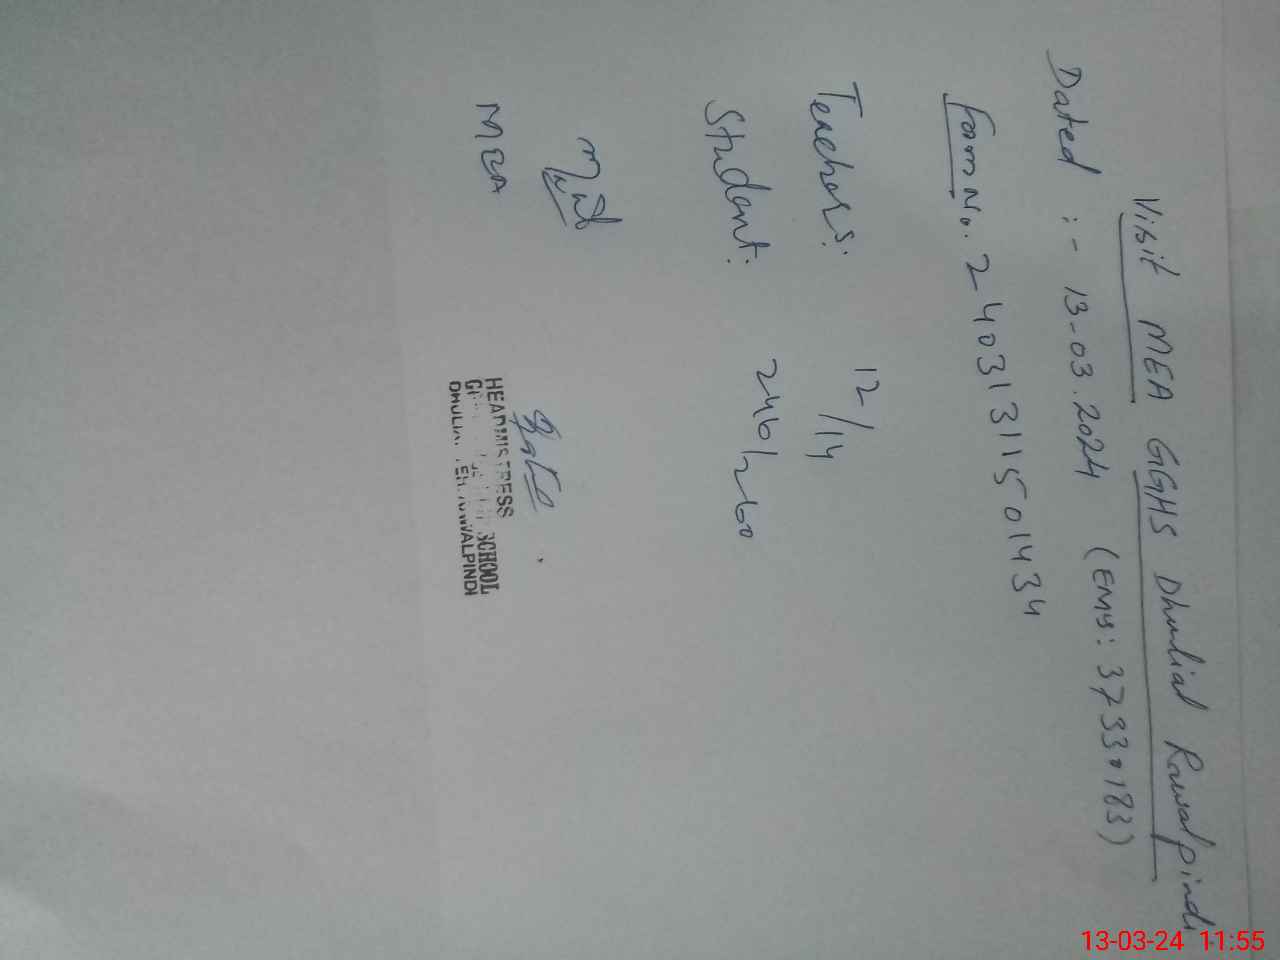 Visit MEA GGHS Dhulial Rawalpindi
Dated :- 13-03.2024 (EMIS: 37330183)
Form No. 24031311501434
Teachers: 12/14
Student: 246/260
MEA
HEADMISTRESS
SCHOOL
RAWALPINDI
13-03-24 11:55